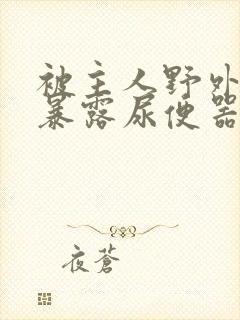 被主人野外
暴露尿便器
夜蒼